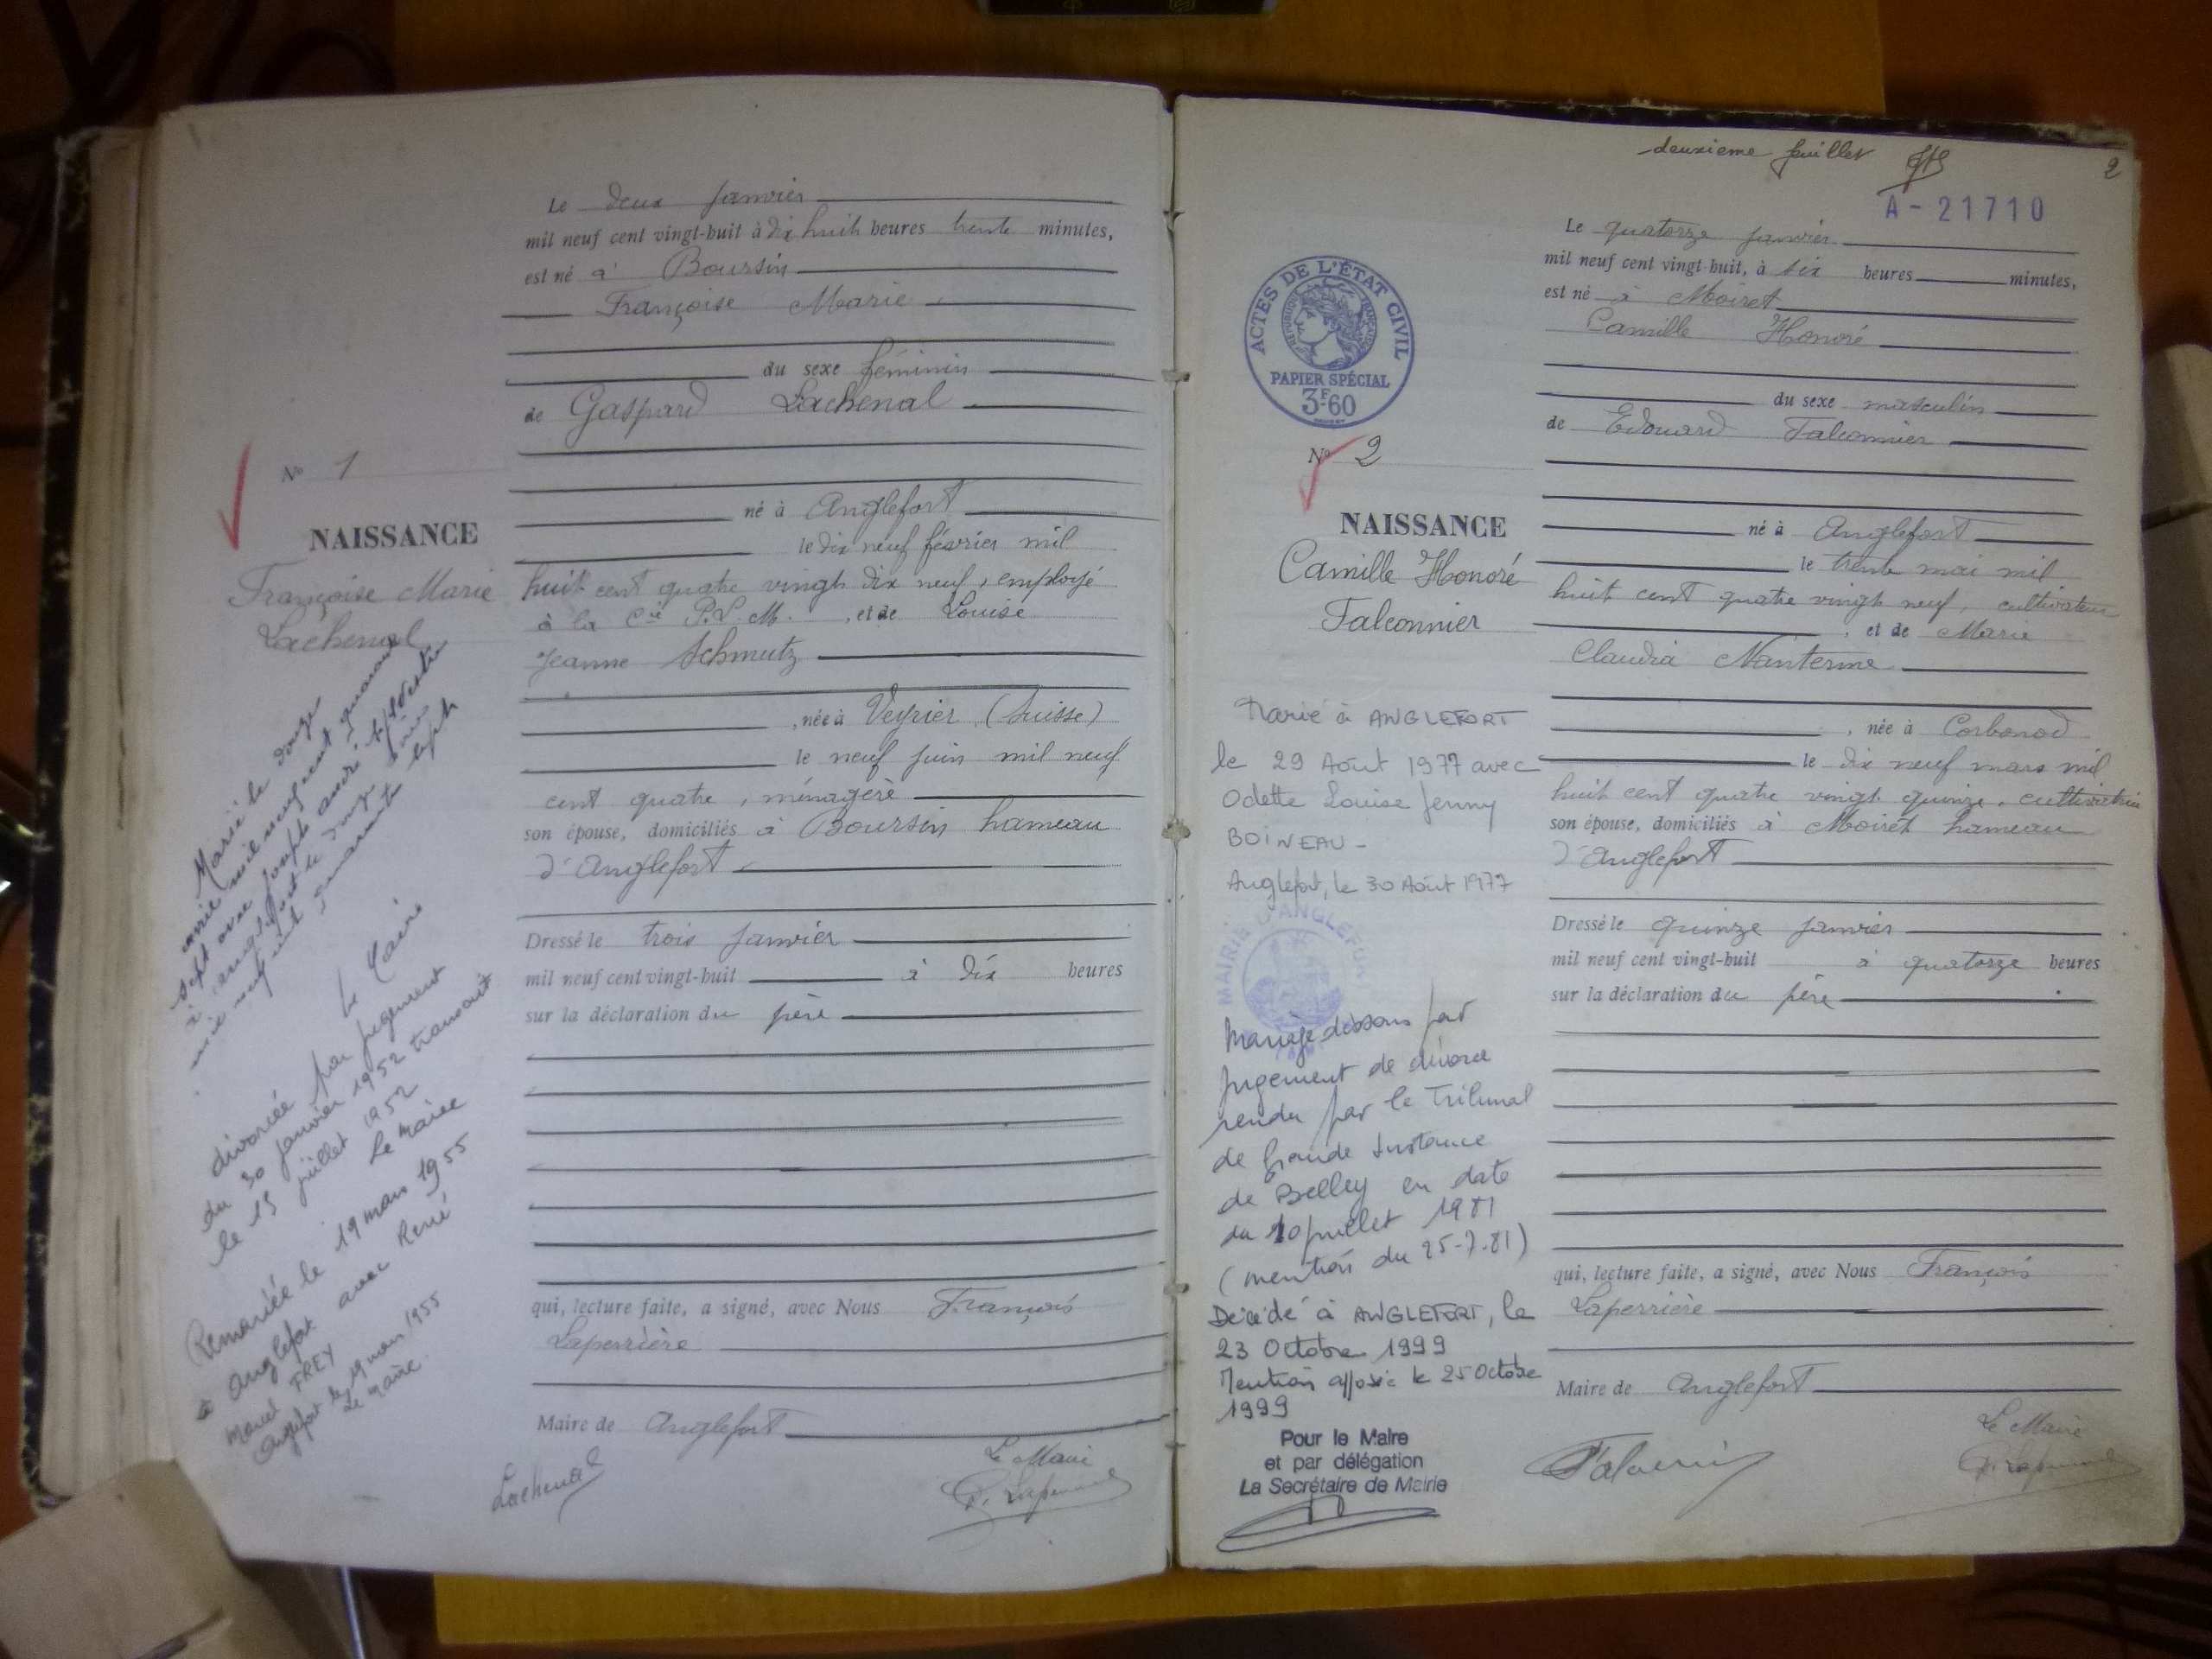 Le deux janvier
mil neuf cent vingt-huit à dix huit heures trente minutes,
est né à Boursin
Françoise Marie
du sexe féminin
de Gaspard Lachenal
né à Anglefort
le dix neuf février mil
huit cent quatre vingt dix neuf, employé
à la Cie P.L.M. , et de Louise
Jeanne Schmutz
, née à Veyrier (Suisse)
le neuf juin mil neuf
cent quatre, ménagère
son épouse, domiciliés à Boursin hameau
d'Anglefort
Dressé le trois janvier
mil neuf cent vingt-huit à dix heures
sur la déclaration du père
qui, lecture faite, a signé, avec Nous François
Laperrière
Maire de Anglefort
Lachenal
Le Maire
No 1
NAISSANCE
Françoise Marie
Lachenal
Marié le douze
avril mil neuf cent quarante
sept avec Joseph André
à Anglefort le douze
mil neuf cent quarante sept
Le Maire
divorcée par jugement
du 30 janvier 1952 transcrit
le 15 juillet 1952
Le Maire
Remariée le 19 mars 1955
à Anglefort avec René
Marcel FREY
Anglefort le 19 mars 1955
Le Maire
deuxième feuillet
2
A-21710
ACTES DE L'ÉTAT CIVIL
RÉPUBLIQUE FRANÇAISE
PAPIER SPÉCIAL
3F60
No 2
NAISSANCE
Camille Honoré
Falconnier
Marié à ANGLEFORT
le 29 Août 1977 avec
Odette Louise Jenny
BOINEAU -
Anglefort, le 30 Août 1977
MAIRIE D'ANGLEFORT
Mariage dissous par
jugement de divorce
rendu par le Tribunal
de Grande Instance
de Belley en date
du 10 juillet 1981
(mention du 25-7-81)
Décédé à ANGLEFORT, le
23 Octobre 1999
Mention apposée le 25 Octobre
1999
Pour le Maire
et par délégation
La Secrétaire de Mairie
Le quatorze janvier
mil neuf cent vingt-huit, à six heures minutes,
est né à Moiret
Camille Honoré
du sexe masculin
de Edouard Falconnier
né à Anglefort
le trente mai mil
huit cent quatre vingt neuf, cultivateur
, et de Marie
Claudia Nanterme
, née à Corbonod
le dix neuf mars mil
huit cent quatre vingt quinze, cultivatrice
son épouse, domiciliés à Moiret hameau
d'Anglefort
Dressé le quinze janvier
mil neuf cent vingt-huit à quatorze heures
sur la déclaration du père
qui, lecture faite, a signé, avec Nous François
Laperrière
Maire de Anglefort
Le Maire